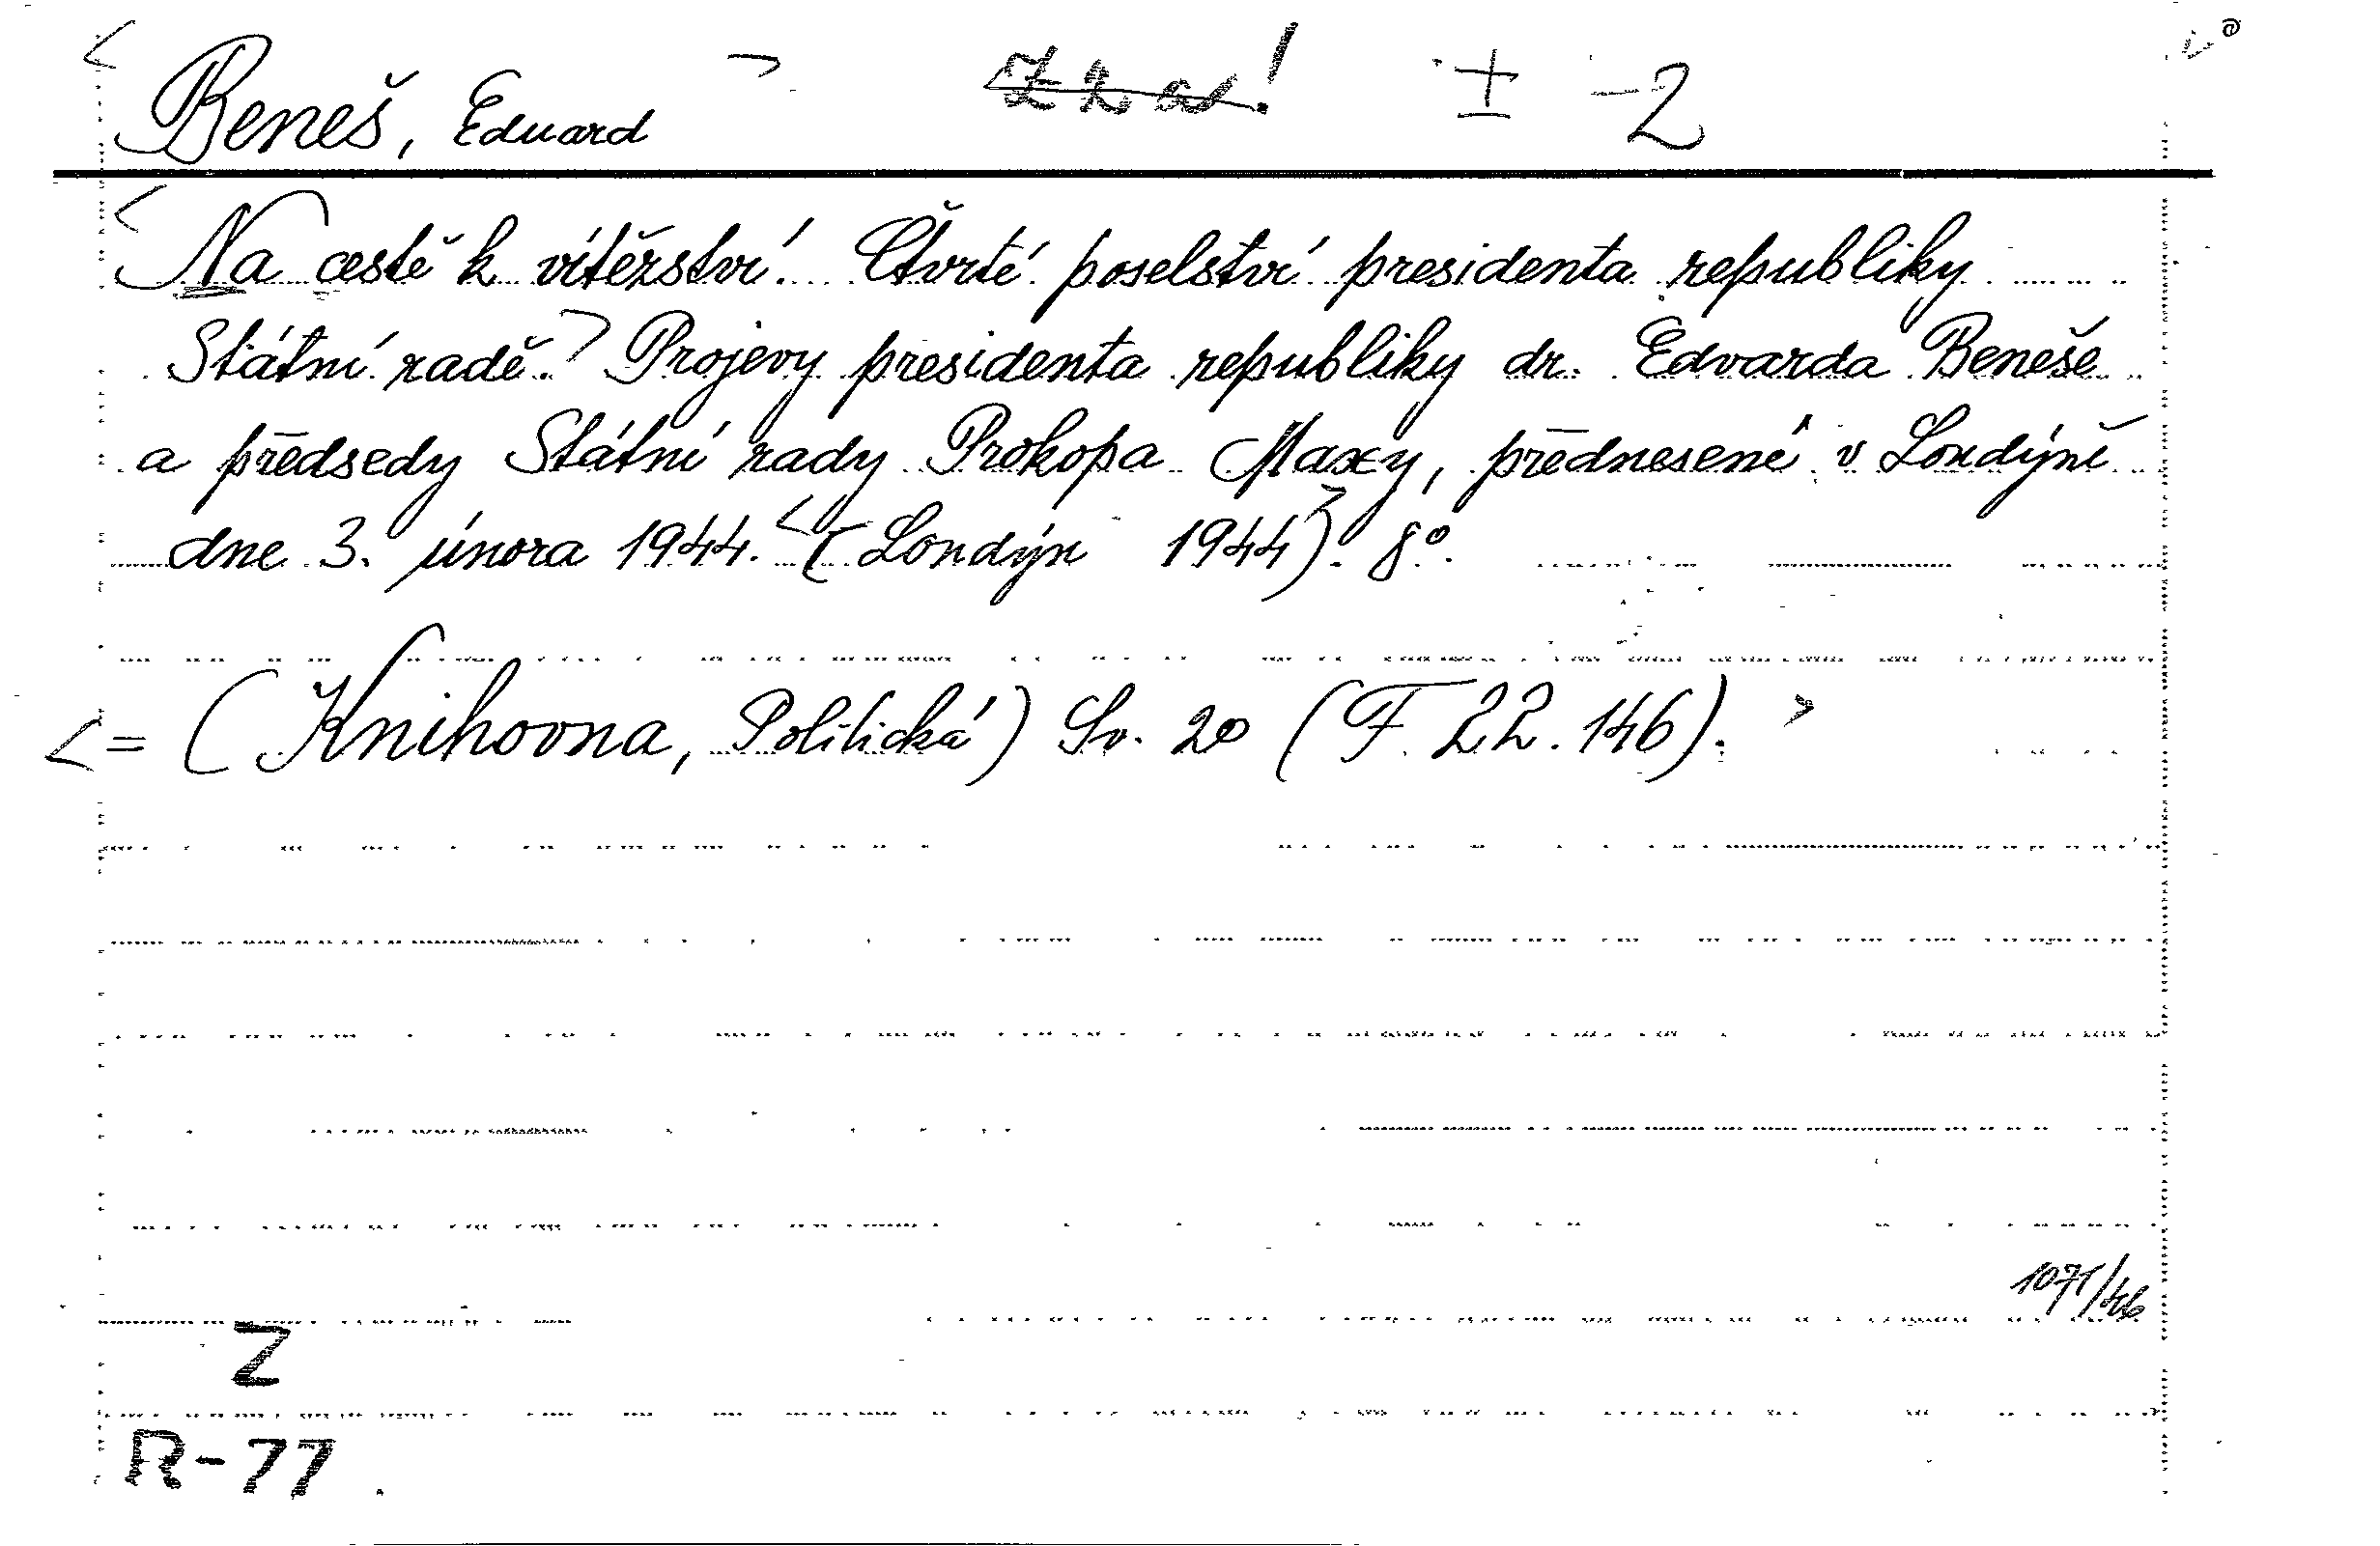 Beneš, Eduard ± -2
Na cestě k vítězství. Čtvrté poselství presidenta republiky
Státní radě. Projevy presidenta republiky dr. Edvarda Beneše
a předsedy Státní rady Prokopa Maxy, přednesené v Londýně
dne 3. února 1944. (Londýn 1944). 8°.
= (Knihovna, Politická) Sv. 20 (F. 22. 146).
1071/46
Z
R-77